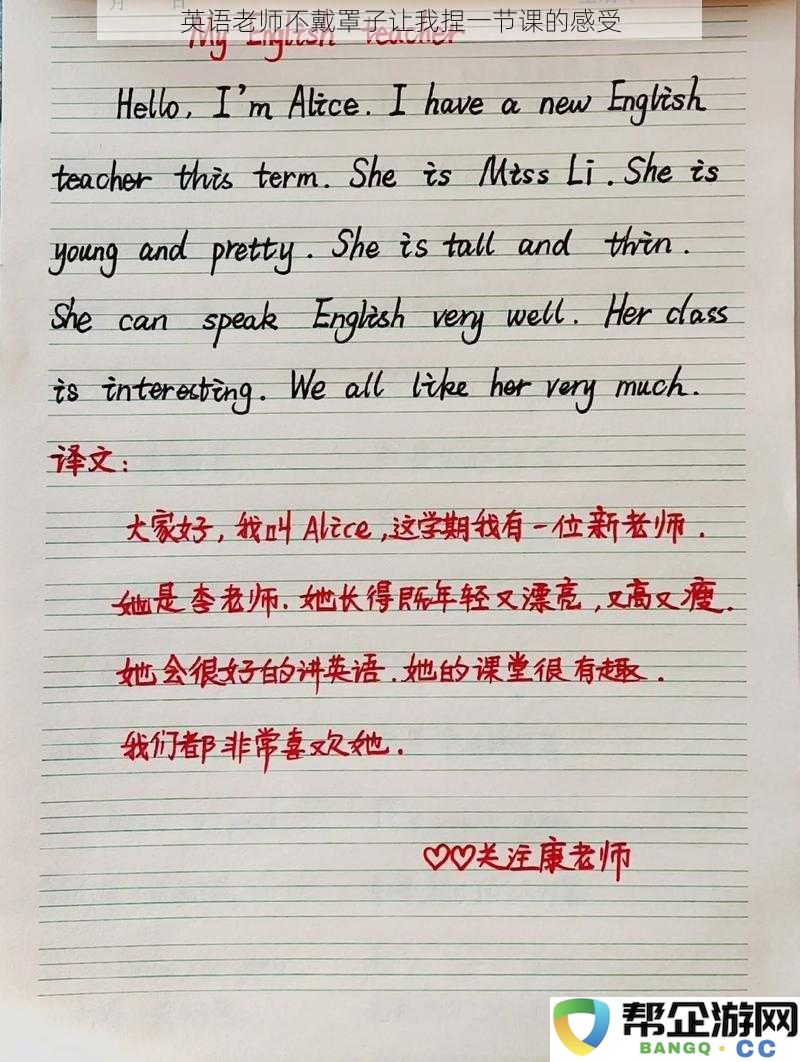 英语老师不戴罩子让我捏一节课的感受
My English teacher
Hello, I'm Alice. I have a new English
teacher this term. She is Miss Li. She is
young and pretty. She is tall and thin.
She can speak English very well. Her class
is interesting. We all like her very much.
译文:
大家好,我叫Alice,这学期我有一位新老师.
她是李老师.她长得既年轻又漂亮,又高又瘦.
她会很好的讲英语.她的课堂很有趣.
我们都非常喜欢她.
♡♡关注康老师
帮企游网
BANGQ·CC